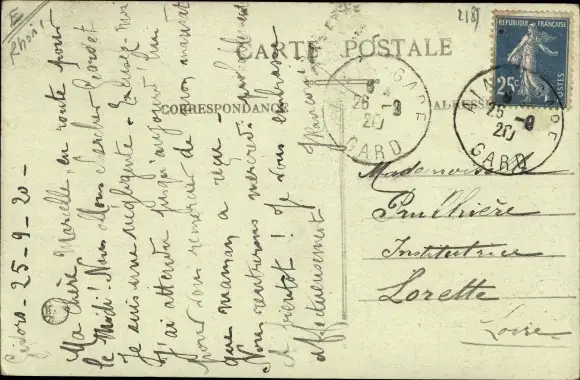 CARTE POSTALE
CORRESPONDANCE
ADRESSE
2187
RÉPUBLIQUE FRANÇAISE
25c
POSTES
GARE
26 - 9
20
GARD
GARE
26 - 9
20
GARD
Mademoiselle
Institutrice
Lorette
Loire
E
Rhône
25-9-20-
Ma chère Marcelle, en route pour
le Midi! Nous allons chercher
Je suis une négligente - Excusez-moi
J'ai attendu jusqu'aujourd'hui
pour vous remercier de mon
que maman a reçue -
Nous rentrerons mercredi
À bientôt! Je vous embrasse
affectueusement